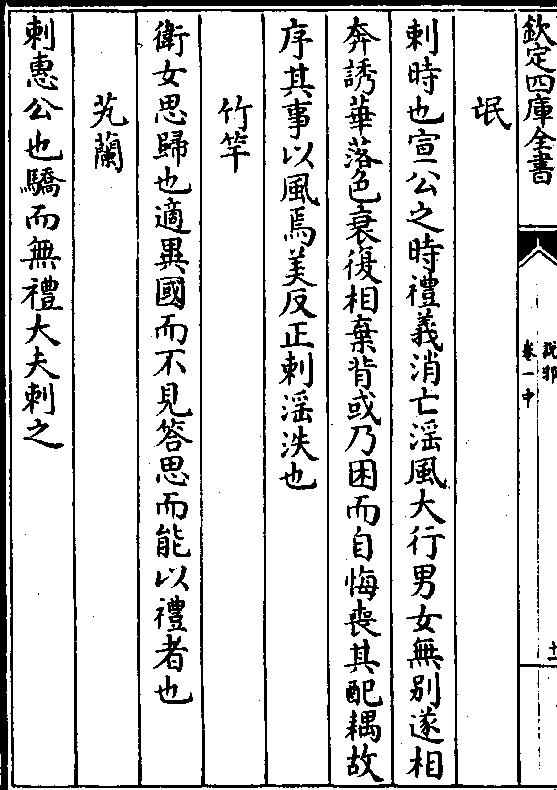 欽定四庫全書
卷一中
氓
刺時也宣公之時禮義消亡淫風大行男女無別遂相
奔誘華落色衰復相棄背或乃困而自悔喪其配耦故
序其事以風焉美反正刺淫泆也
竹竿
衛女思歸也適異國而不見答思而能以禮者也
芄蘭
刺惠公也驕而無禮大夫刺之